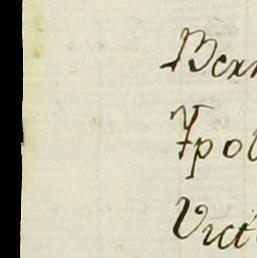 Bern
Ypol
Vict